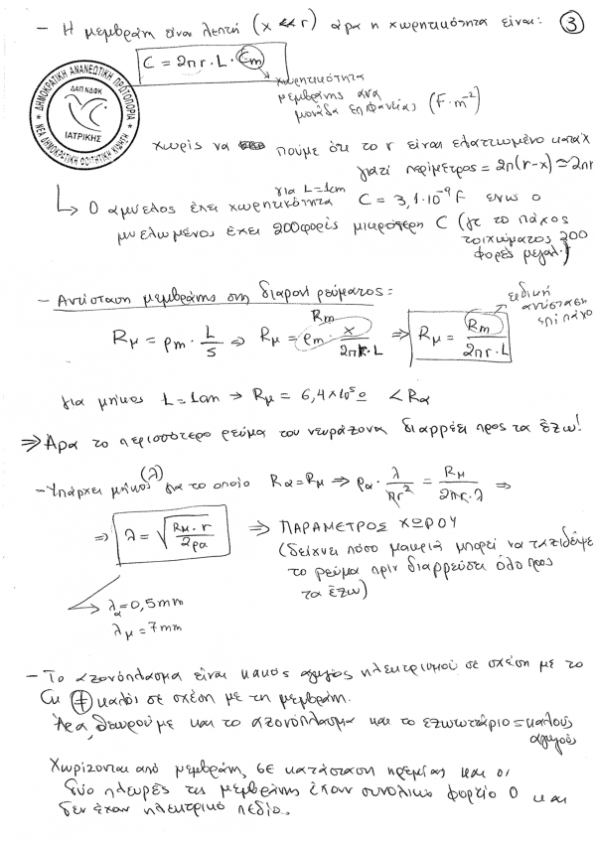 - Η μεμβράνη είναι λεπτή (x << r) άρα η χωρητικότητα είναι: 3
C = 2πr · L · Cm
χωρητικότητα
μεμβράνης ανα
μονάδα επιφανείας (F·m⁻²)
ΔΗΜΟΚΡΑΤΙΚΗ ΑΝΑΝΕΩΤΙΚΗ ΠΡΩΤΟΠΟΡΙΑ
ΔΑΠ ΝΔΦΚ
ΙΑΤΡΙΚΗΣ
ΝΕΑ ΔΗΜΟΚΡΑΤΙΚΗ ΦΟΙΤΗΤΙΚΗ ΚΙΝΗΣΗ
χωρίς να πούμε ότι το r είναι ελαττωμένο κατά x
γιατί περίμετρος = 2π(r-x) ≃ 2πr
για L=1cm
↳ Ο αμυελος έχει χωρητικότητα C = 3,1·10⁻⁹ F ενώ ο
μυελωμένος έχει 200 φορές μικρότερη C (με το πάχος
τοιχώματος 200
φορές μεγαλ.)
- Αντίσταση μεμβράνης στη διαρροή ρεύματος:
Rμ = ρm · L/S ⇒ Rμ = ρm · x/2πr·L ⇒ Rμ = Rm/2πr·L
Rm
ειδική
αντίσταση
επί πάχο
για μήκος L=1cm → Rμ = 6,4×10⁵ Ω < Rα
⇒ Άρα το περισσότερο ρεύμα του νευράξονα διαρρέει προς τα έξω!
- Υπάρχει μήκος (λ) για το οποίο Rα = Rμ ⇒ ρα · λ/πr² = Rμ/2πr·λ ⇒
⇒ λ = √(Rμ·r/2ρα) ⇒ ΠΑΡΑΜΕΤΡΟΣ ΧΩΡΟΥ
(δείχνει πόσο μακριά μπορεί να ταξιδέψει
το ρεύμα πριν διαρρεύσει όλο προς
τα έξω)
λα = 0,5mm
λμ = 7mm
- Το αξονόπλασμα είναι κακός αγωγός ηλεκτρισμού σε σχέση με το
Cu ≠ καλός σε σχέση με τη μεμβράνη.
Άρα, θεωρούμε και το αξονόπλασμα και το εξωωτάριο = καλούς
αγωγούς
Χωρίζονται από μεμβράνη, σε κατάσταση ηρεμίας και οι
δύο πλευρές της μεμβράνης έχουν συνολικό φορτίο 0 και
δεν έχουν ηλεκτρικό πεδίο.